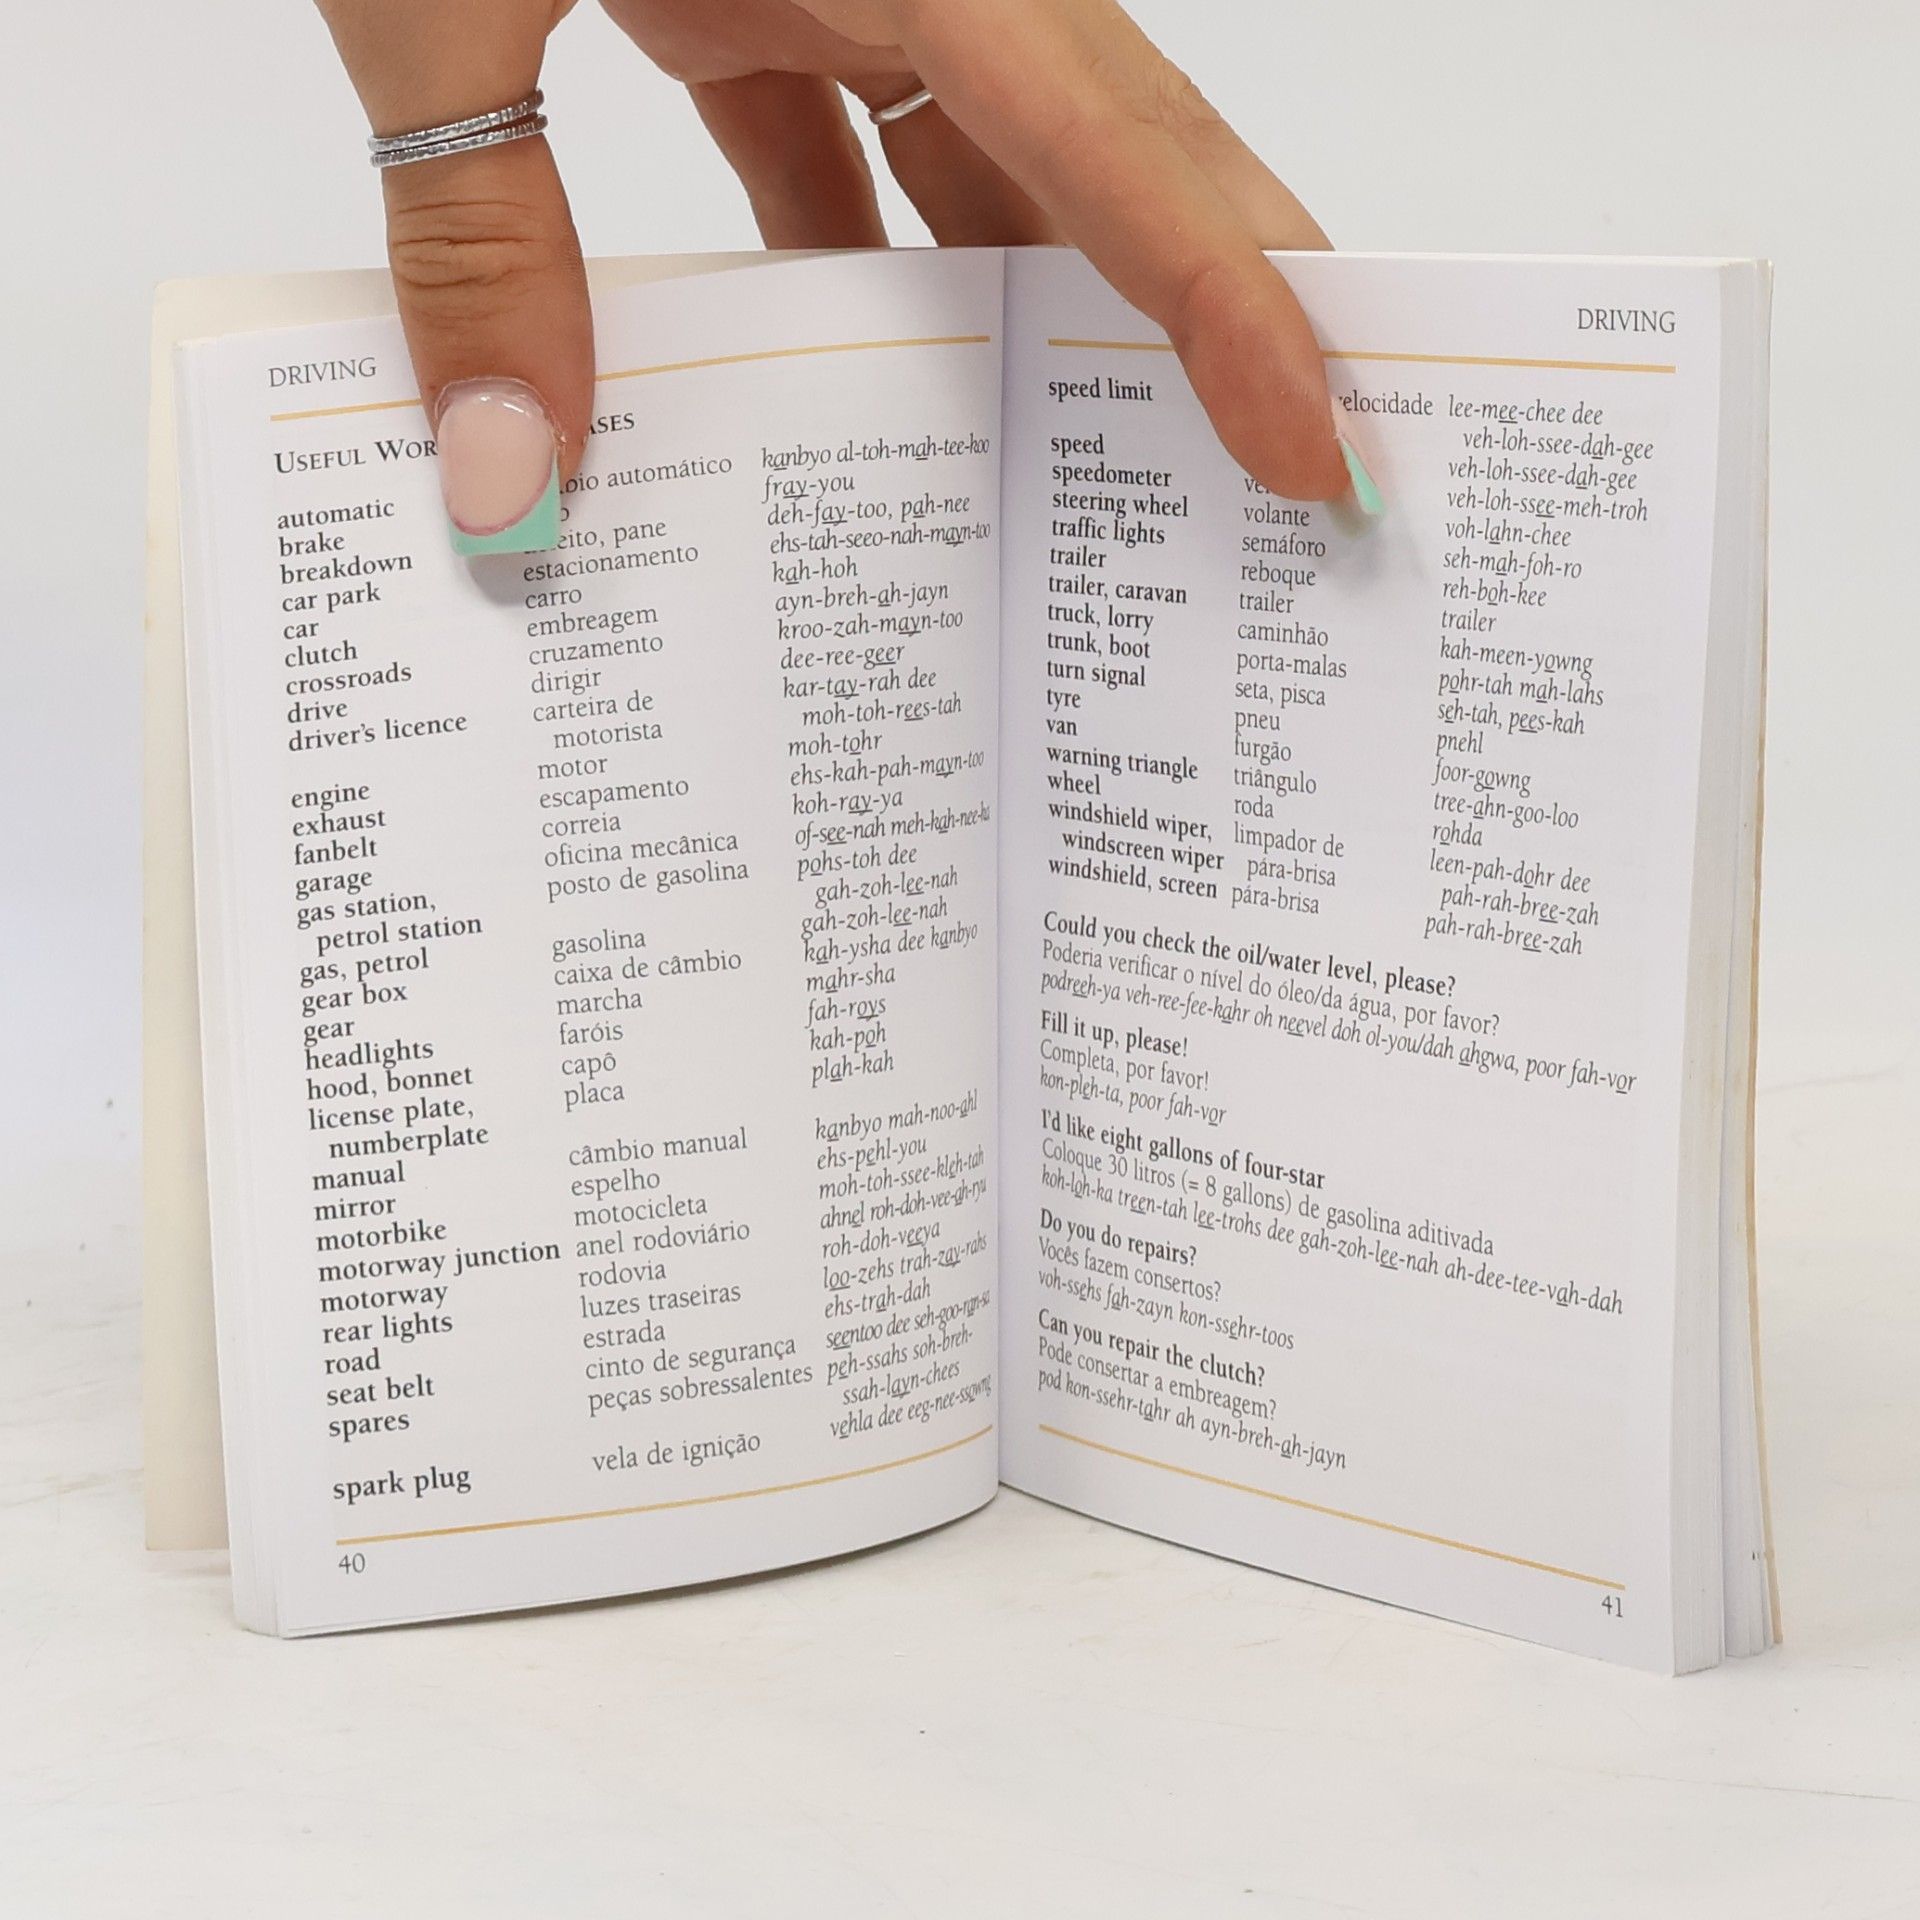 DRIVING
USEFUL
automatic automático kanbyo al-toh-mah-tee-koo
brake fray-you
breakdown pane deh-fay-too, pah-nee
car park estacionamento ehs-tah-seeo-nah-mayn-too
car carro kah-hoh
clutch embreagem ayn-breh-ah-jayn
crossroads cruzamento kroo-zah-mayn-too
drive dirigir dee-ree-geer
driver's licence carteira de kar-tay-rah dee
motorista moh-toh-rees-tah
engine motor moh-tohr
exhaust escapamento ehs-kah-pah-mayn-too
fanbelt correia koh-ray-ya
garage oficina mecânica of-see-nah
gas station, posto de gasolina pohs-toh dee
petrol station gah-zoh-lee-nah
gas, petrol gasolina gah-zoh-lee-nah
gear box caixa de câmbio kah-ysha dee kanbyo
gear marcha mahr-sha
headlights faróis fah-roys
hood, bonnet capô kah-poh
license plate, placa plah-kah
numberplate
manual câmbio manual kanbyo mah-noo-ahl
mirror espelho ehs-pehl-you
motorbike motocicleta moh-toh-ssee-kleh-tah
motorway junction anel rodoviário ahnel roh-doh-vee-ah-ryu
motorway rodovia roh-doh-veeya
rear lights luzes traseiras loo-zehs trah-zay-rahs
road estrada ehs-trah-dah
seat belt cinto de segurança seentoo dee seh-goo-ran-sa
spares peças sobressalentes peh-ssahs soh-breh-
ssah-layn-chees
spark plug vela de ignição vehla dee eeg-nee-ssowng
40
DRIVING
speed limit lee-mee-chee dee
veh-loh-ssee-dah-gee
speed veh-loh-ssee-dah-gee
speedometer veh-loh-ssee-meh-troh
steering wheel volante voh-lahn-chee
traffic lights semáforo seh-mah-foh-ro
trailer reboque reh-boh-kee
trailer, caravan trailer trailer
truck, lorry caminhão kah-meen-yowng
trunk, boot porta-malas pohr-tah mah-lahs
turn signal seta, pisca seh-tah, pees-kah
tyre pneu pnehl
van furgão foor-gowng
warning triangle triângulo tree-ahn-goo-loo
wheel roda rohda
windshield wiper, limpador de leen-pah-dohr dee
windscreen wiper pára-brisa pah-rah-bree-zah
windshield, screen pára-brisa pah-rah-bree-zah
Could you check the oil/water level, please?
Poderia verificar o nível do óleo/da água, por favor?
podreeh-ya veh-ree-fee-kahr oh neevel doh ol-you/dah ahgwa, poor fah-vor
Fill it up, please!
Completa, por favor!
kon-pleh-ta, poor fah-vor
I'd like eight gallons of four-star
Coloque 30 litros (= 8 gallons) de gasolina aditivada
koh-loh-ka treen-tah lee-trohs dee gah-zoh-lee-nah ah-dee-tee-vah-dah
Do you do repairs?
Vocês fazem consertos?
voh-ssehs fah-zayn kon-ssehr-toos
Can you repair the clutch?
Pode consertar a embreagem?
pod kon-ssehr-tahr ah ayn-breh-ah-jayn
41